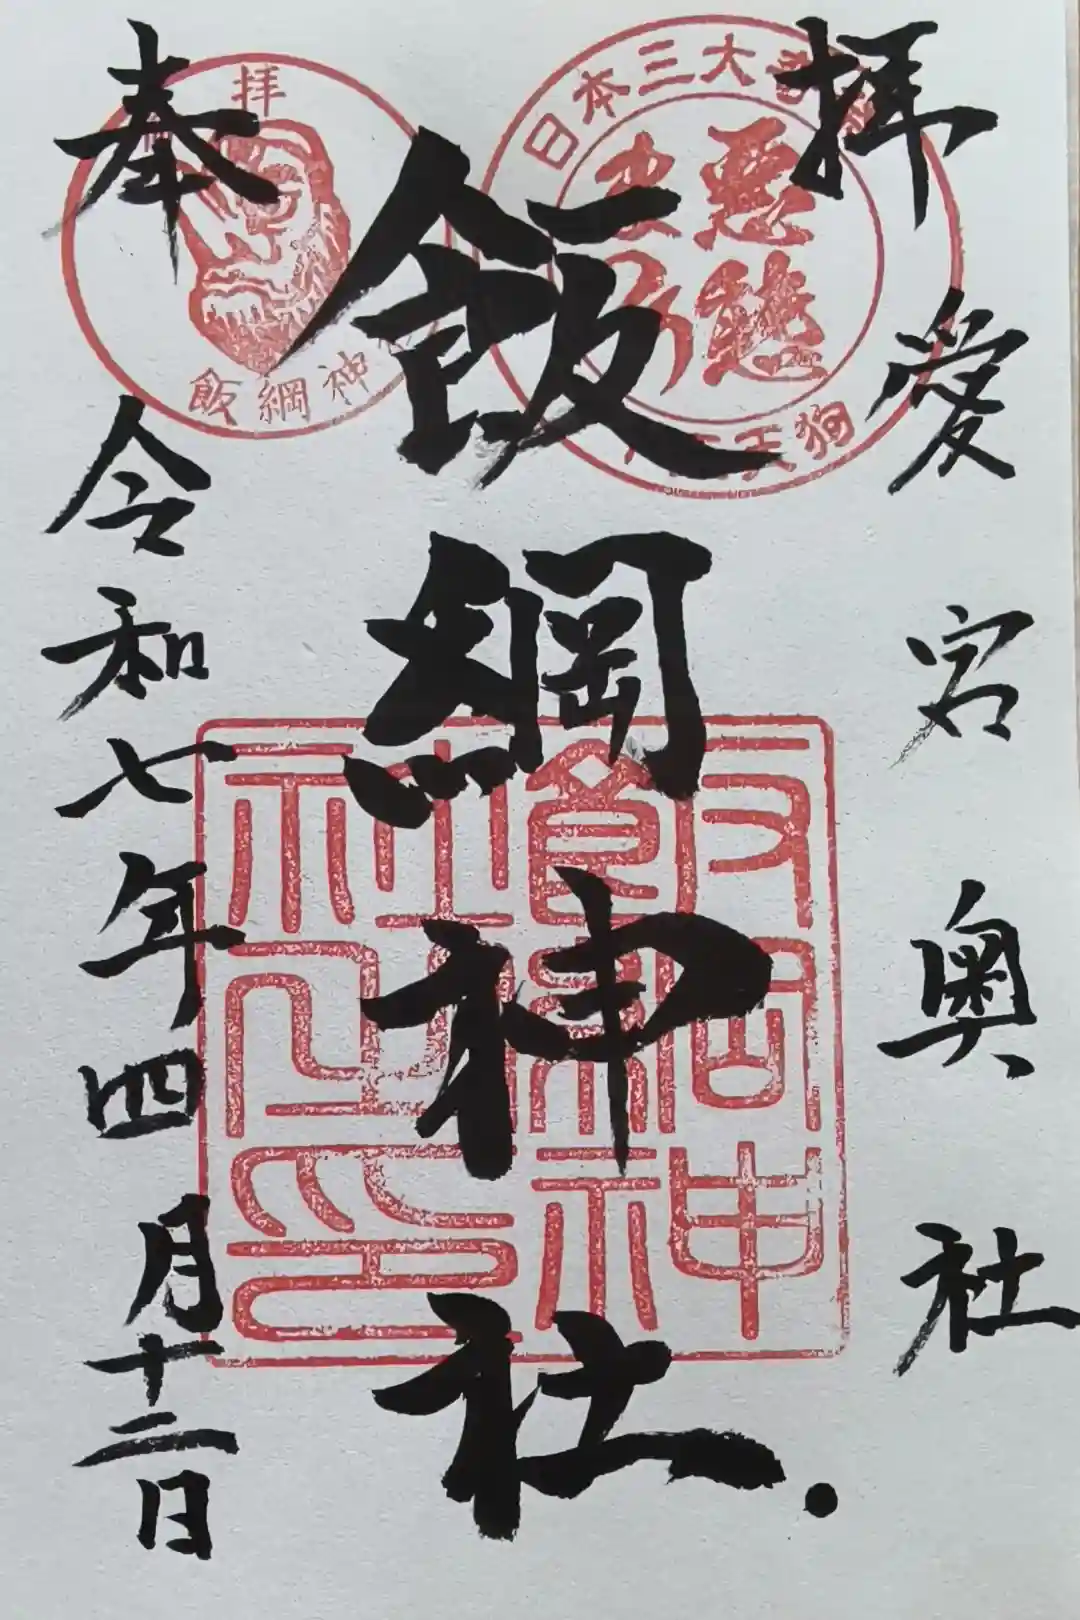 奉拝
愛宕奥社
飯綱神社
令和七年四月十二日
日本三大
悪態
天狗
拝
飯綱神
飯綱神社之印